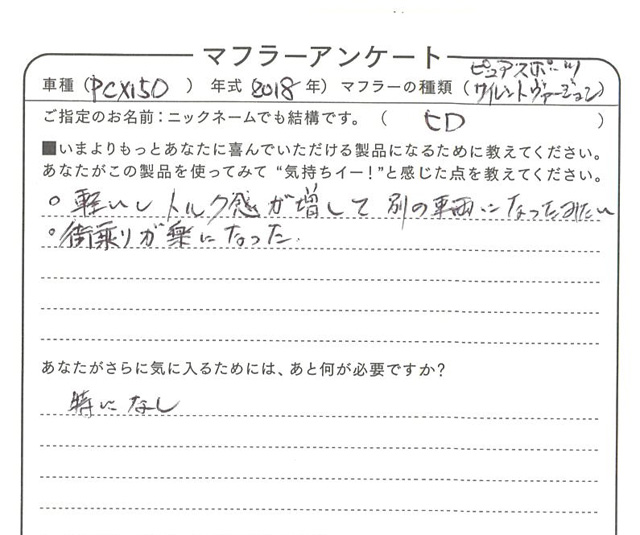 マフラーアンケート
車種（PCX150）年式（2018年）マフラーの種類（ピュアスポーツ
サイレントヴァージョン）
ご指定のお名前：ニックネームでも結構です。（ ヒロ ）
■いまよりもっとあなたに喜んでいただける製品になるために教えてください。
あなたがこの製品を使ってみて“気持ちイー！”と感じた点を教えてください。
○ 軽いしトルク感が増して 別の車両になったみたい
○ 街乗りが楽になった.
あなたがさらに気に入るためには、あと何が必要ですか？
特になし